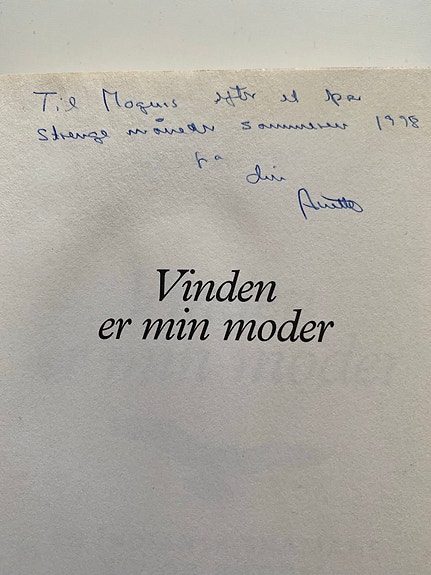 Til Mogens efter et par
strenge måneder sommeren 1998
fra
din
Anette
Vinden
er min moder